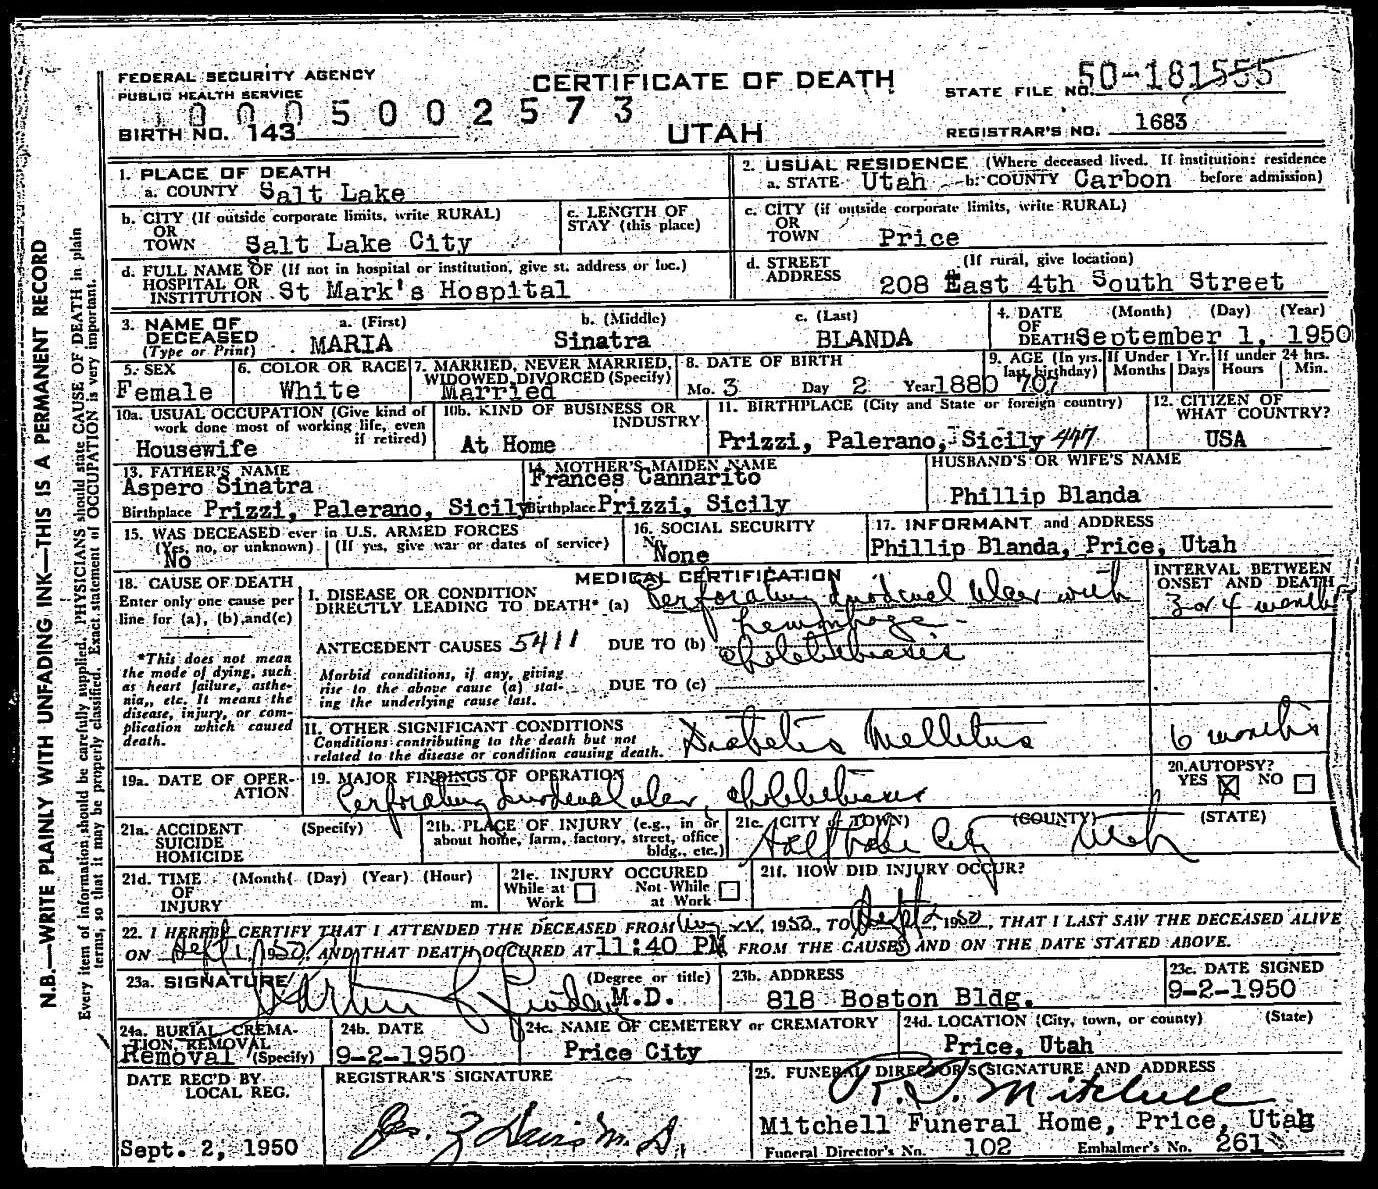 FEDERAL SECURITY AGENCY
PUBLIC HEALTH SERVICE
CERTIFICATE OF DEATH
UTAH
STATE FILE NO. 50-181555
REGISTRAR'S NO. 1683
0005002573
BIRTH NO. 143
1. PLACE OF DEATH
a. COUNTY Salt Lake
2. USUAL RESIDENCE (Where deceased lived. If institution: residence before admission)
a. STATE Utah b. COUNTY Carbon
b. CITY (If outside corporate limits, write RURAL)
OR
TOWN Salt Lake City
c. LENGTH OF
STAY (this place)
c. CITY (if outside corporate limits, write RURAL)
OR
TOWN Price
d. FULL NAME OF (If not in hospital or institution, give st. address or loc.)
HOSPITAL OR
INSTITUTION St Mark's Hospital
d. STREET (If rural, give location)
ADDRESS 208 East 4th South Street
3. NAME OF
DECEASED
(Type or Print)
a. (First) b. (Middle) c. (Last)
MARIA Sinatra BLANDA
4. DATE (Month) (Day) (Year)
OF
DEATH September 1, 1950
5. SEX
Female
6. COLOR OR RACE
White
7. MARRIED, NEVER MARRIED,
WIDOWED, DIVORCED (Specify)
Married
8. DATE OF BIRTH
Mo. 3 Day 2 Year 1880
9. AGE (In yrs. last birthday) 70
If Under 1 Yr.
Months Days
If under 24 hrs.
Hours Min.
10a. USUAL OCCUPATION (Give kind of
work done most of working life, even
if retired)
Housewife
10b. KIND OF BUSINESS OR
INDUSTRY
At Home
11. BIRTHPLACE (City and State or foreign country)
Prizzi, Palerano, Sicily 447
12. CITIZEN OF
WHAT COUNTRY?
USA
13. FATHER'S NAME
Aspero Sinatra
Birthplace Prizzi, Palerano, Sicily
14. MOTHER'S MAIDEN NAME
Frances Cannarito
Birthplace Prizzi, Sicily
HUSBAND'S OR WIFE'S NAME
Phillip Blanda
15. WAS DECEASED ever in U.S. ARMED FORCES
(Yes, no, or unknown) (If yes, give war or dates of service)
No
16. SOCIAL SECURITY
No.
None
17. INFORMANT and ADDRESS
Phillip Blanda, Price, Utah
18. CAUSE OF DEATH
Enter only one cause per
line for (a), (b), and (c)
*This does not mean
the mode of dying, such
as heart failure, asthe-
nia,, etc. It means the
disease, injury, or com-
plication which caused
death.
MEDICAL CERTIFICATION
INTERVAL BETWEEN
ONSET AND DEATH
I. DISEASE OR CONDITION
DIRECTLY LEADING TO DEATH* (a) Perforating duodenal ulcer with
hemorrhage
3 or 4 months
ANTECEDENT CAUSES 5411 DUE TO (b)
Morbid conditions, if any, giving
rise to the above cause (a) stat-
ing the underlying cause last.
DUE TO (c)
II. OTHER SIGNIFICANT CONDITIONS
Conditions contributing to the death but not
related to the disease or condition causing death.
Diabetes Mellitus
6 months
19a. DATE OF OPER-
ATION
19. MAJOR FINDINGS OF OPERATION
Perforating duodenal ulcer,
20. AUTOPSY?
YES X NO
21a. ACCIDENT (Specify)
SUICIDE
HOMICIDE
21b. PLACE OF INJURY (e.g., in or
about home, farm, factory, street, office
bldg., etc.)
21c. (CITY or TOWN) (COUNTY) (STATE)
Salt Lake City Utah
21d. TIME (Month) (Day) (Year) (Hour)
OF
INJURY m.
21e. INJURY OCCURED
While at Work
Not While at Work
21f. HOW DID INJURY OCCUR?
22. I HEREBY CERTIFY THAT I ATTENDED THE DECEASED FROM Aug 1950, TO Sept 1950, THAT I LAST SAW THE DECEASED ALIVE
ON Sept 1, 1950, AND THAT DEATH OCCURED AT 11:40 PM FROM THE CAUSES AND ON THE DATE STATED ABOVE.
23a. SIGNATURE (Degree or title)
M.D.
23b. ADDRESS
818 Boston Bldg.
23c. DATE SIGNED
9-2-1950
24a. BURIAL, CREMA-
TION, REMOVAL
Removal (Specify)
24b. DATE
9-2-1950
24c. NAME OF CEMETERY or CREMATORY
Price City
24d. LOCATION (City, town, or county) (State)
Price, Utah
DATE REC'D BY
LOCAL REG.
Sept. 2, 1950
REGISTRAR'S SIGNATURE
25. FUNERAL DIRECTOR'S SIGNATURE AND ADDRESS
Mitchell
Mitchell Funeral Home, Price, Utah
Funeral Director's No. 102 Embalmer's No. 261
N.B.—WRITE PLAINLY WITH UNFADING INK—THIS IS A PERMANENT RECORD
Every item of information should be carefully supplied. PHYSICIANS should state CAUSE OF DEATH in plain
terms, so that it may be properly classified. Exact statement of OCCUPATION is very important.